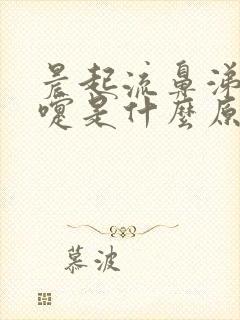 晨起流鼻涕
嚏是什麼原
慕波